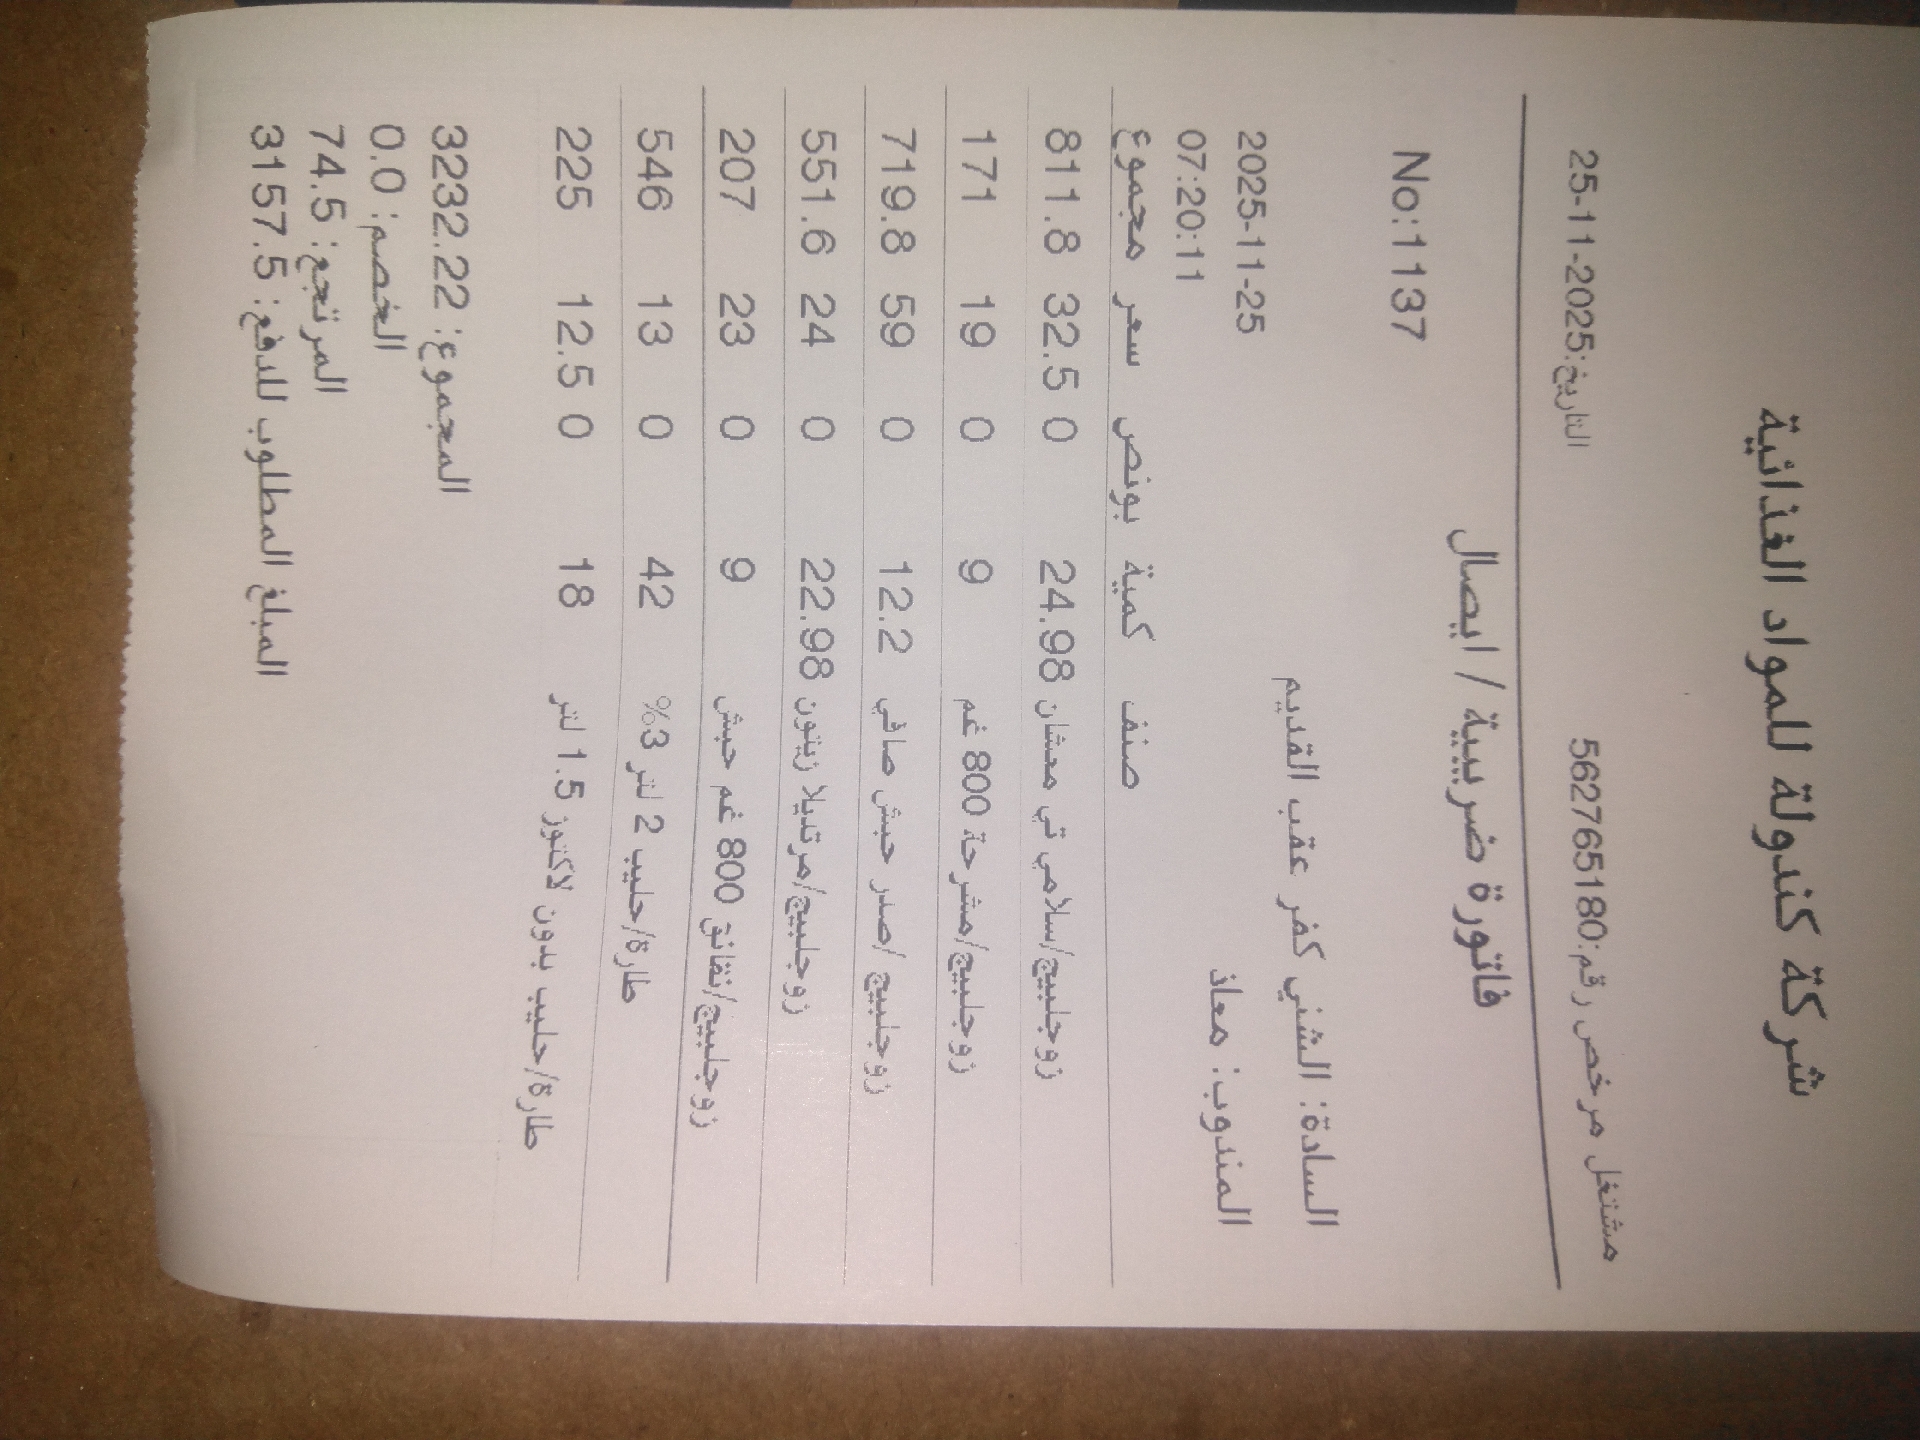 شركة كندولة للمواد الغذائية
مشتغل مرخص رقم:562765180 التاريخ:2025-11-25
فاتورة ضريبية / ايصال
No:1137
السادة: الشني كفر عقب القديم
2025-11-25
المندوب: معاذ 07:20:11
صنف كمية بونص سعر مجموع
زوجلبيج/سلامي تي معشان 24.98 0 32.5 811.8
زوجلبيج/مشرحة 800 غم 9 0 19 171
زوجلبيج /صدر حبش صافي 12.2 0 59 719.8
زوجلبيج/مرتديلا زيتون 22.98 0 24 551.6
زوجلبيج/نقانق 800 غم حبش 9 0 23 207
طارة/حليب 2 لتر 3% 42 0 13 546
طارة/حليب بدون لاكتوز 1.5 لتر 18 0 12.5 225
المجموع: 3232.22
الخصم: 0.0
المرتجع: 74.5
المبلغ المطلوب للدفع: 3157.5